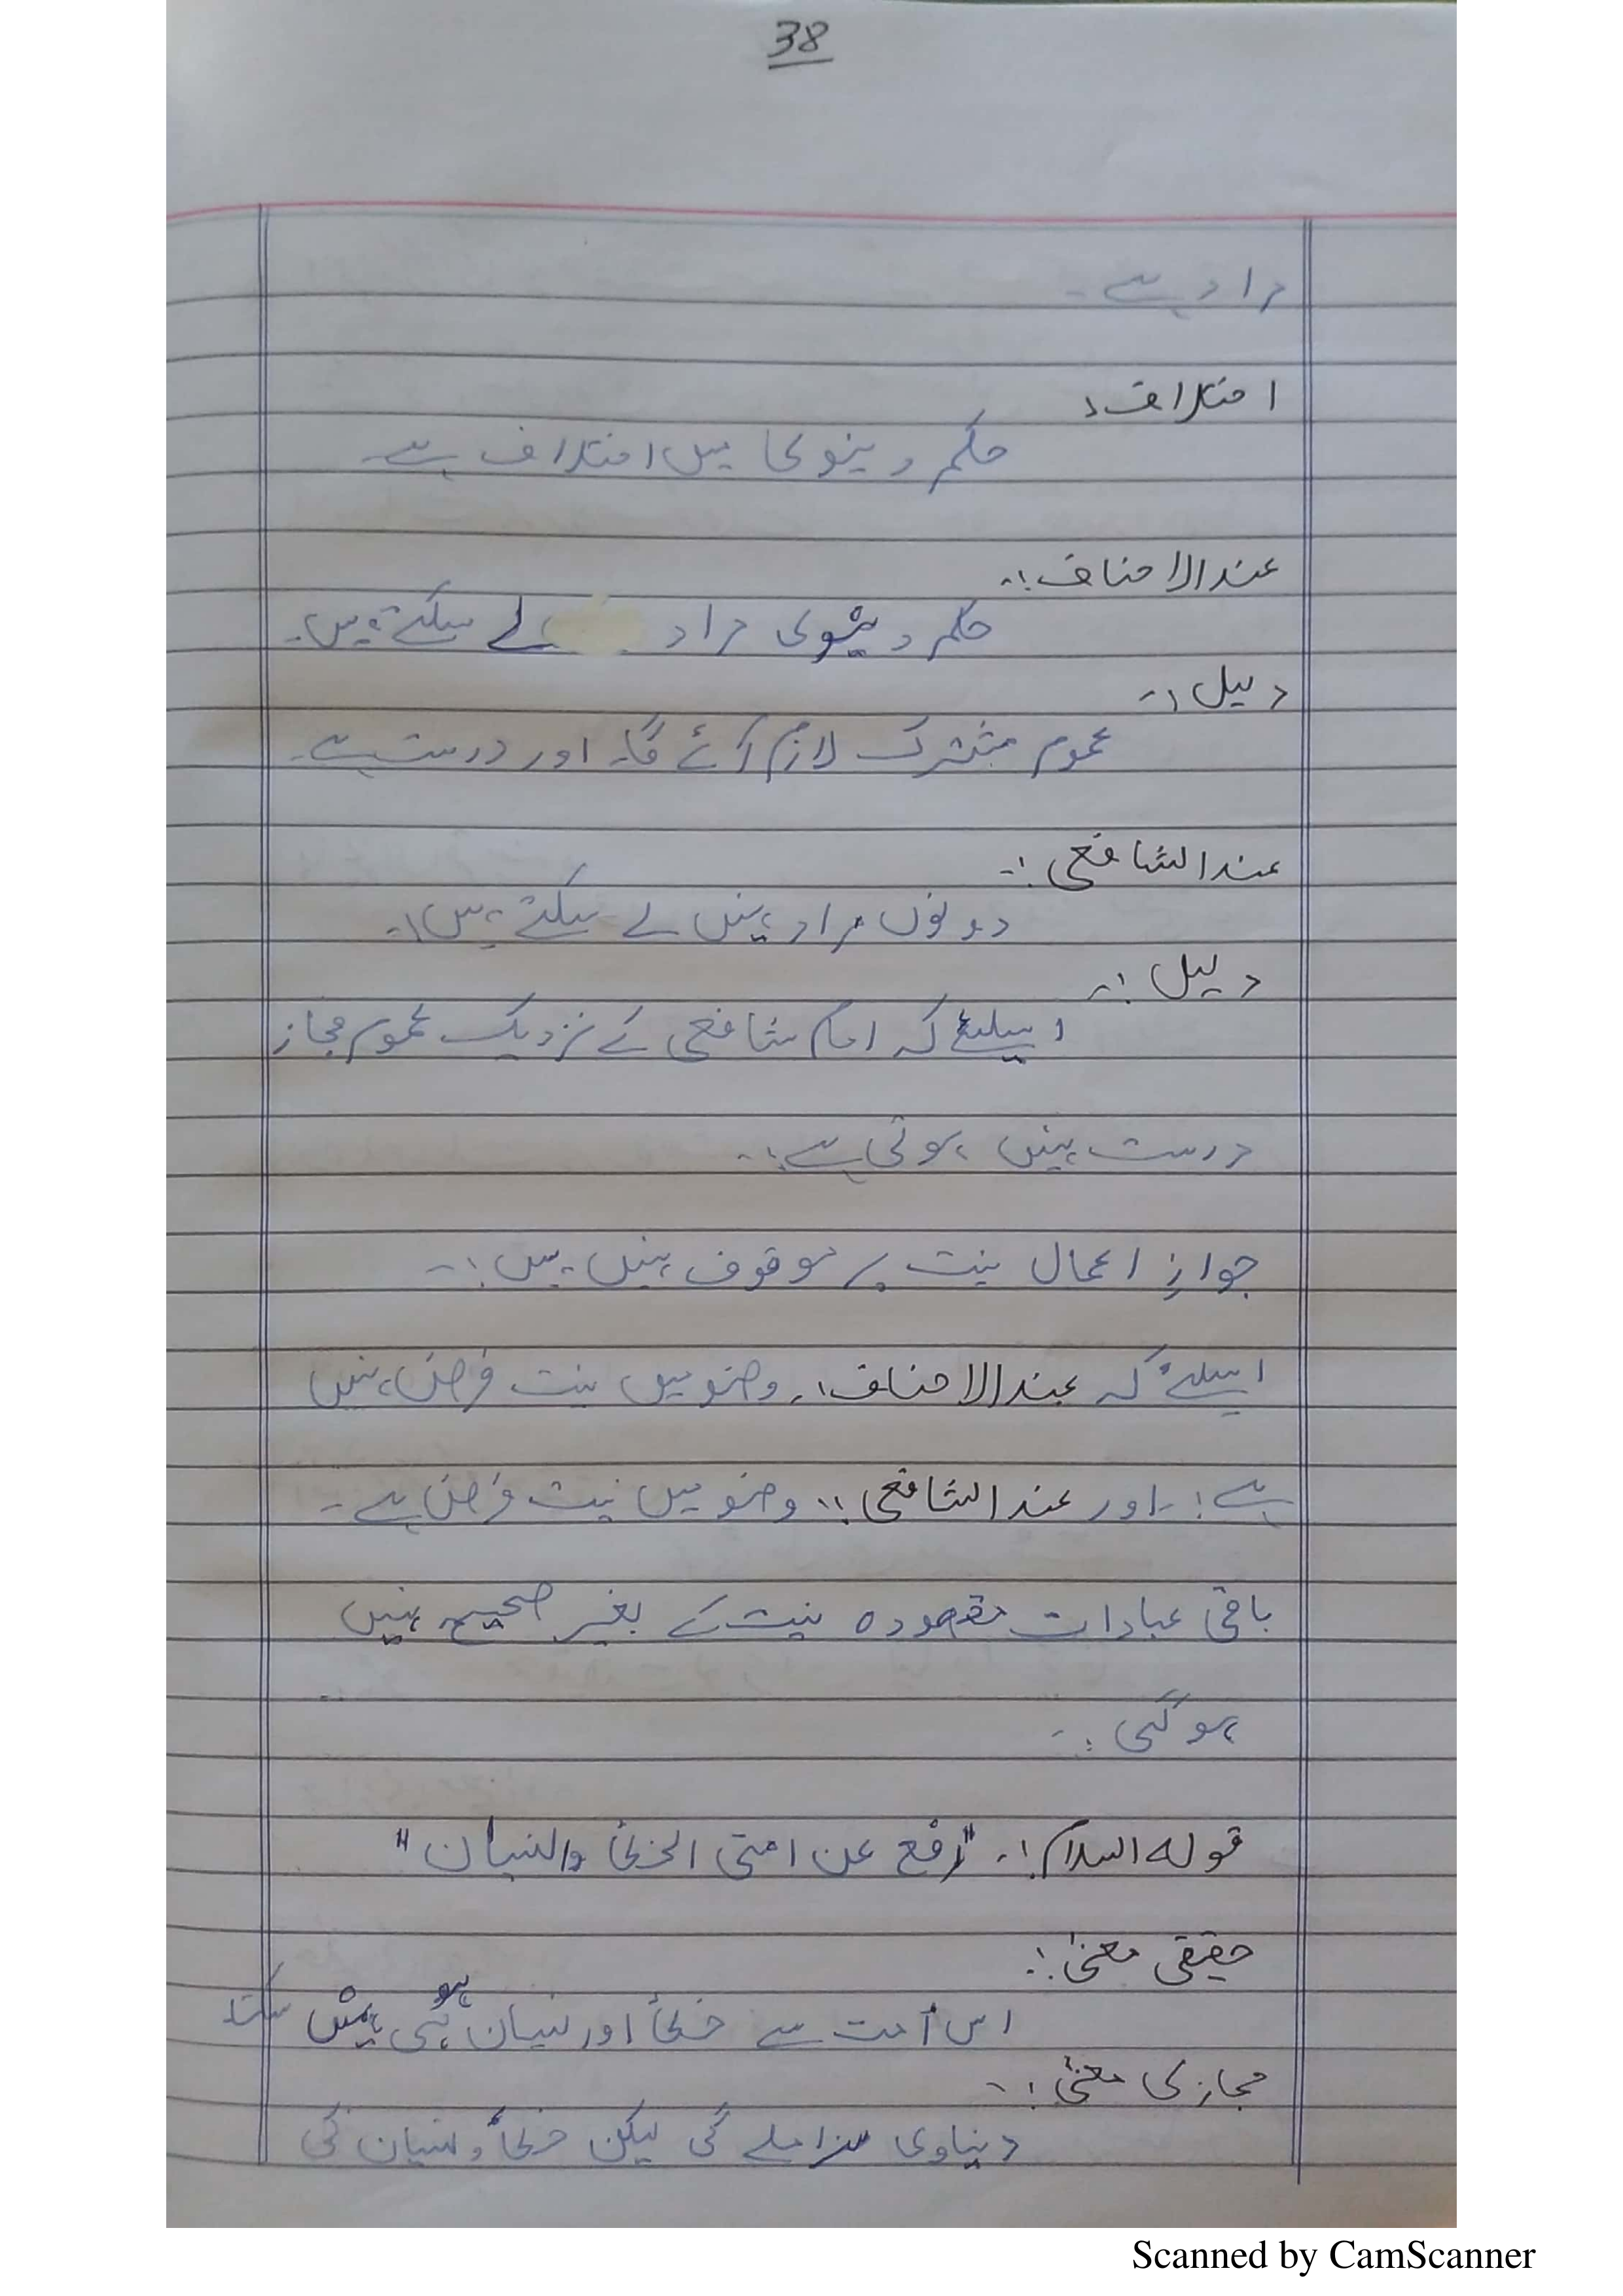 38
مراد ہے۔
اختلاف:
حکم دینوی میں اختلاف ہے۔
عندالاحناف:۔
حکم دینوی مراد لے سکتے ہیں۔
دلیل:۔
عموم مشترک لازم آئے گا۔ اور درست ہے۔
عندالشافعی:۔
دونوں مراد نہیں لے سکتے ہیں:۔
دلیل:۔
اسلئے کہ امام شافعی کے نزدیک عموم مجاز
درست نہیں ہوتی ہے:۔
جوازِ اعمال نیت پر موقوف نہیں ہیں:۔
اسلئے کہ عندالاحناف:۔ وضو میں نیت فرض نہیں
ہے:۔ اور عندالشافعی:۔ وضو میں نیت فرض ہے۔
باقی عبادات مقصودہ نیت کے بغیر صحیح نہیں
ہوگی:۔
قولہ السلام:۔ "رُفع عن امتی الخطأ والنسیان"
حقیقی معنیٰ:۔
اس اُمت سے خطأ اور نسیان ہو ہی نہیں سکتا
مجازی معنیٰ:۔
دنیاوی سزا ملے گی لیکن خطأ و نسیان کی
Scanned by CamScanner